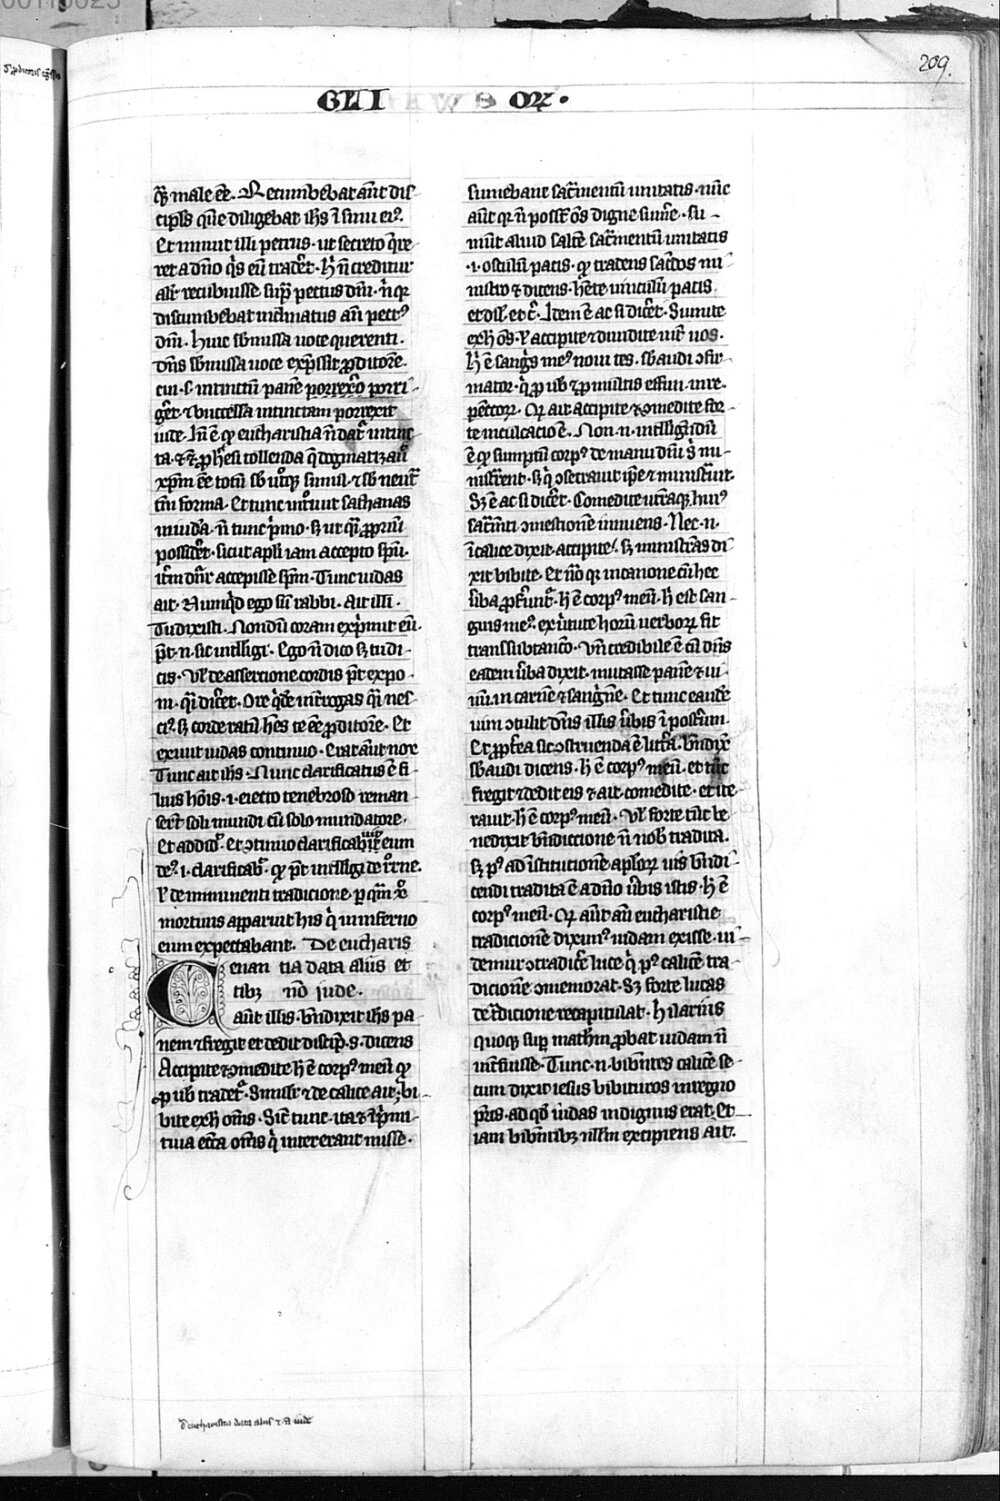 209.
GLI OꝜ.
male eē. Recumbebat aūt dis
cipl's quē diligebat ihs ī sinu ei9.
Et innuit illi petrus. ut secreto q̄re
ret a dn̄o q̄s eū trad'et. h' n̄ creditur
recubuisse sup̄ pectus dn̄i.
discumbebat inclinatus an̄ pect9
dn̄i. huic sb̄missa uoce querenti.
dn̄s sb̄missa uoce exp̄ssit ꝓditorē.
cui .s. intinctū panē porrexo porri
g'et. buccella intinctam porrexit
iude. eucharistia n̄ dat' intinc
ta. tollenda q̄ dogmatizaū
xp̄m eē totū sb̄ simul. sb̄
tm̄ forma. Et tunc int'uit sathanas
in iudā. n̄ tunc p'mo. sꝫ ut q̄si ꝓpriū
possid'et. sicut apl'i iam accepto sp̄u.
it'm accepisse sp̄m. Tunc iudas
ait. Numq'd ego sū rabbi. Ait illi.
Tu dixisti. Nondū coram exp'mit eū.
p̄t .n. sic intelligi. Ego n̄ dico sꝫ tu di
cis. Vl' de assercione cordis p̄t expo
ni. q̄si dic'et. Ore int'rogas q̄si nes
ci9. sꝫ corde ratū h̄es te eē ꝓditorē. Et
exiuit iudas continuo. erat aūt nox
Tunc ait ihs. Nunc clarificatus ē fi
lius ho'is .i. eiecto tenebroso reman
ser't soli mundi cū solo mundatore.
Et addid'. Et ↄtinuo clarificabit eum
de9 .i. clarificab'. p̄t intelligi de
l' de imminenti tradicione
mortuus apparuit his q' in inferno
eum expectabant. De eucharis
Cenan tia data aliis et
tibꝫ nō jude.
aūt illis. bn̄dixit ihs pa
nem ⁊ fregit et dedit discip̄ .s. dicens
Accipite ⁊ ↄmedite h' ē corp9 meū
ꝓ uob' tradet'. Simil'r ⁊ de calice ait. bi
bite ex h' om̄s. Sic' tunc. ita ⁊ ī p'mi
tiua ecc'a om̄s q' intererant misse.
sumebant sac'mentū unitatis. nūc
aūt q' n̄ poss't oēs digne sum'e. su
mūt aliud saltē sac'mentū unitatis
.i. osculū pacis. tradens sac'dos mi
nistro ⁊ dicens. h'ete uinculū pacis
Idem ē ac si dic'et. Sumite
ex h' oēs. l' accipite ⁊ diuidite int' uos.
h' ē sangis me9 noui tes. sb̄audi ↄfir
mator. q' ꝓ uob' ⁊ ꝓ multis effun. in re.
pēccoꝝ. Q' ait accipite ⁊ ↄmedite for
te inculcacio ē. Non .n. intelligēdū
ē sumptū corp9 de manu dn̄i
Sꝫ ē ac si dic'et. Comedite
sac'mti ↄmestionē innuens. Nec .n.
ī calice dixit. accipite. sꝫ ministrās di
xit bibite. Et in canone cū hec
u'ba ꝓfe'unt'. h' ē corp9 meū. h' est san
guis me9. ex u'tute horū uerboꝝ fit
transsubtancō. Vn̄ credibile ē cū dn̄s
eadem u'ba dixit. mutasse panē ⁊ ui
nū in carnē ⁊ sang'nē. Et tunc eandē
uim ↄtulit dn̄s illis u'bis ī post'um.
Et ꝓpt'ea sic ↄstruenda ē litt'a. Bn̄dix'
sb̄audi dicens. h' ē corp9 meū. et tūc
fregit ⁊ dedit eis ⁊ ait. comedite. et ite
rauit. h' ē corp9 meū. Vl' forte tūc be
nedixit bn̄diccione n̄ nob' tradita.
sꝫ p9 ad īstitutionē apl'oꝝ uis bn̄di
cendi tradita ē a dn̄o u'bis istis. h' ē
corp9 meū. Q' aūt an̄ eucharistie
tradicionē dixim9 iudam exisse. ui
demur ↄtradic'e luce q' p9 calicē tra
dicionē ↄmemorat. Sꝫ forte lucas
de t'dicione recapitulat. Hilarius
quoqꝫ sup̄ math'm ꝓbat iudam n̄
int'fuisse. Tunc .n. bibn̄tes calicē se
cum dixit iesus bibituros in regno
p̄ris. ad q'd iudas indignus erat. Et
iam bibn̄tibꝫ ullum excipiens ait.
de eucharistia data aliis ⁊ n̄ iude